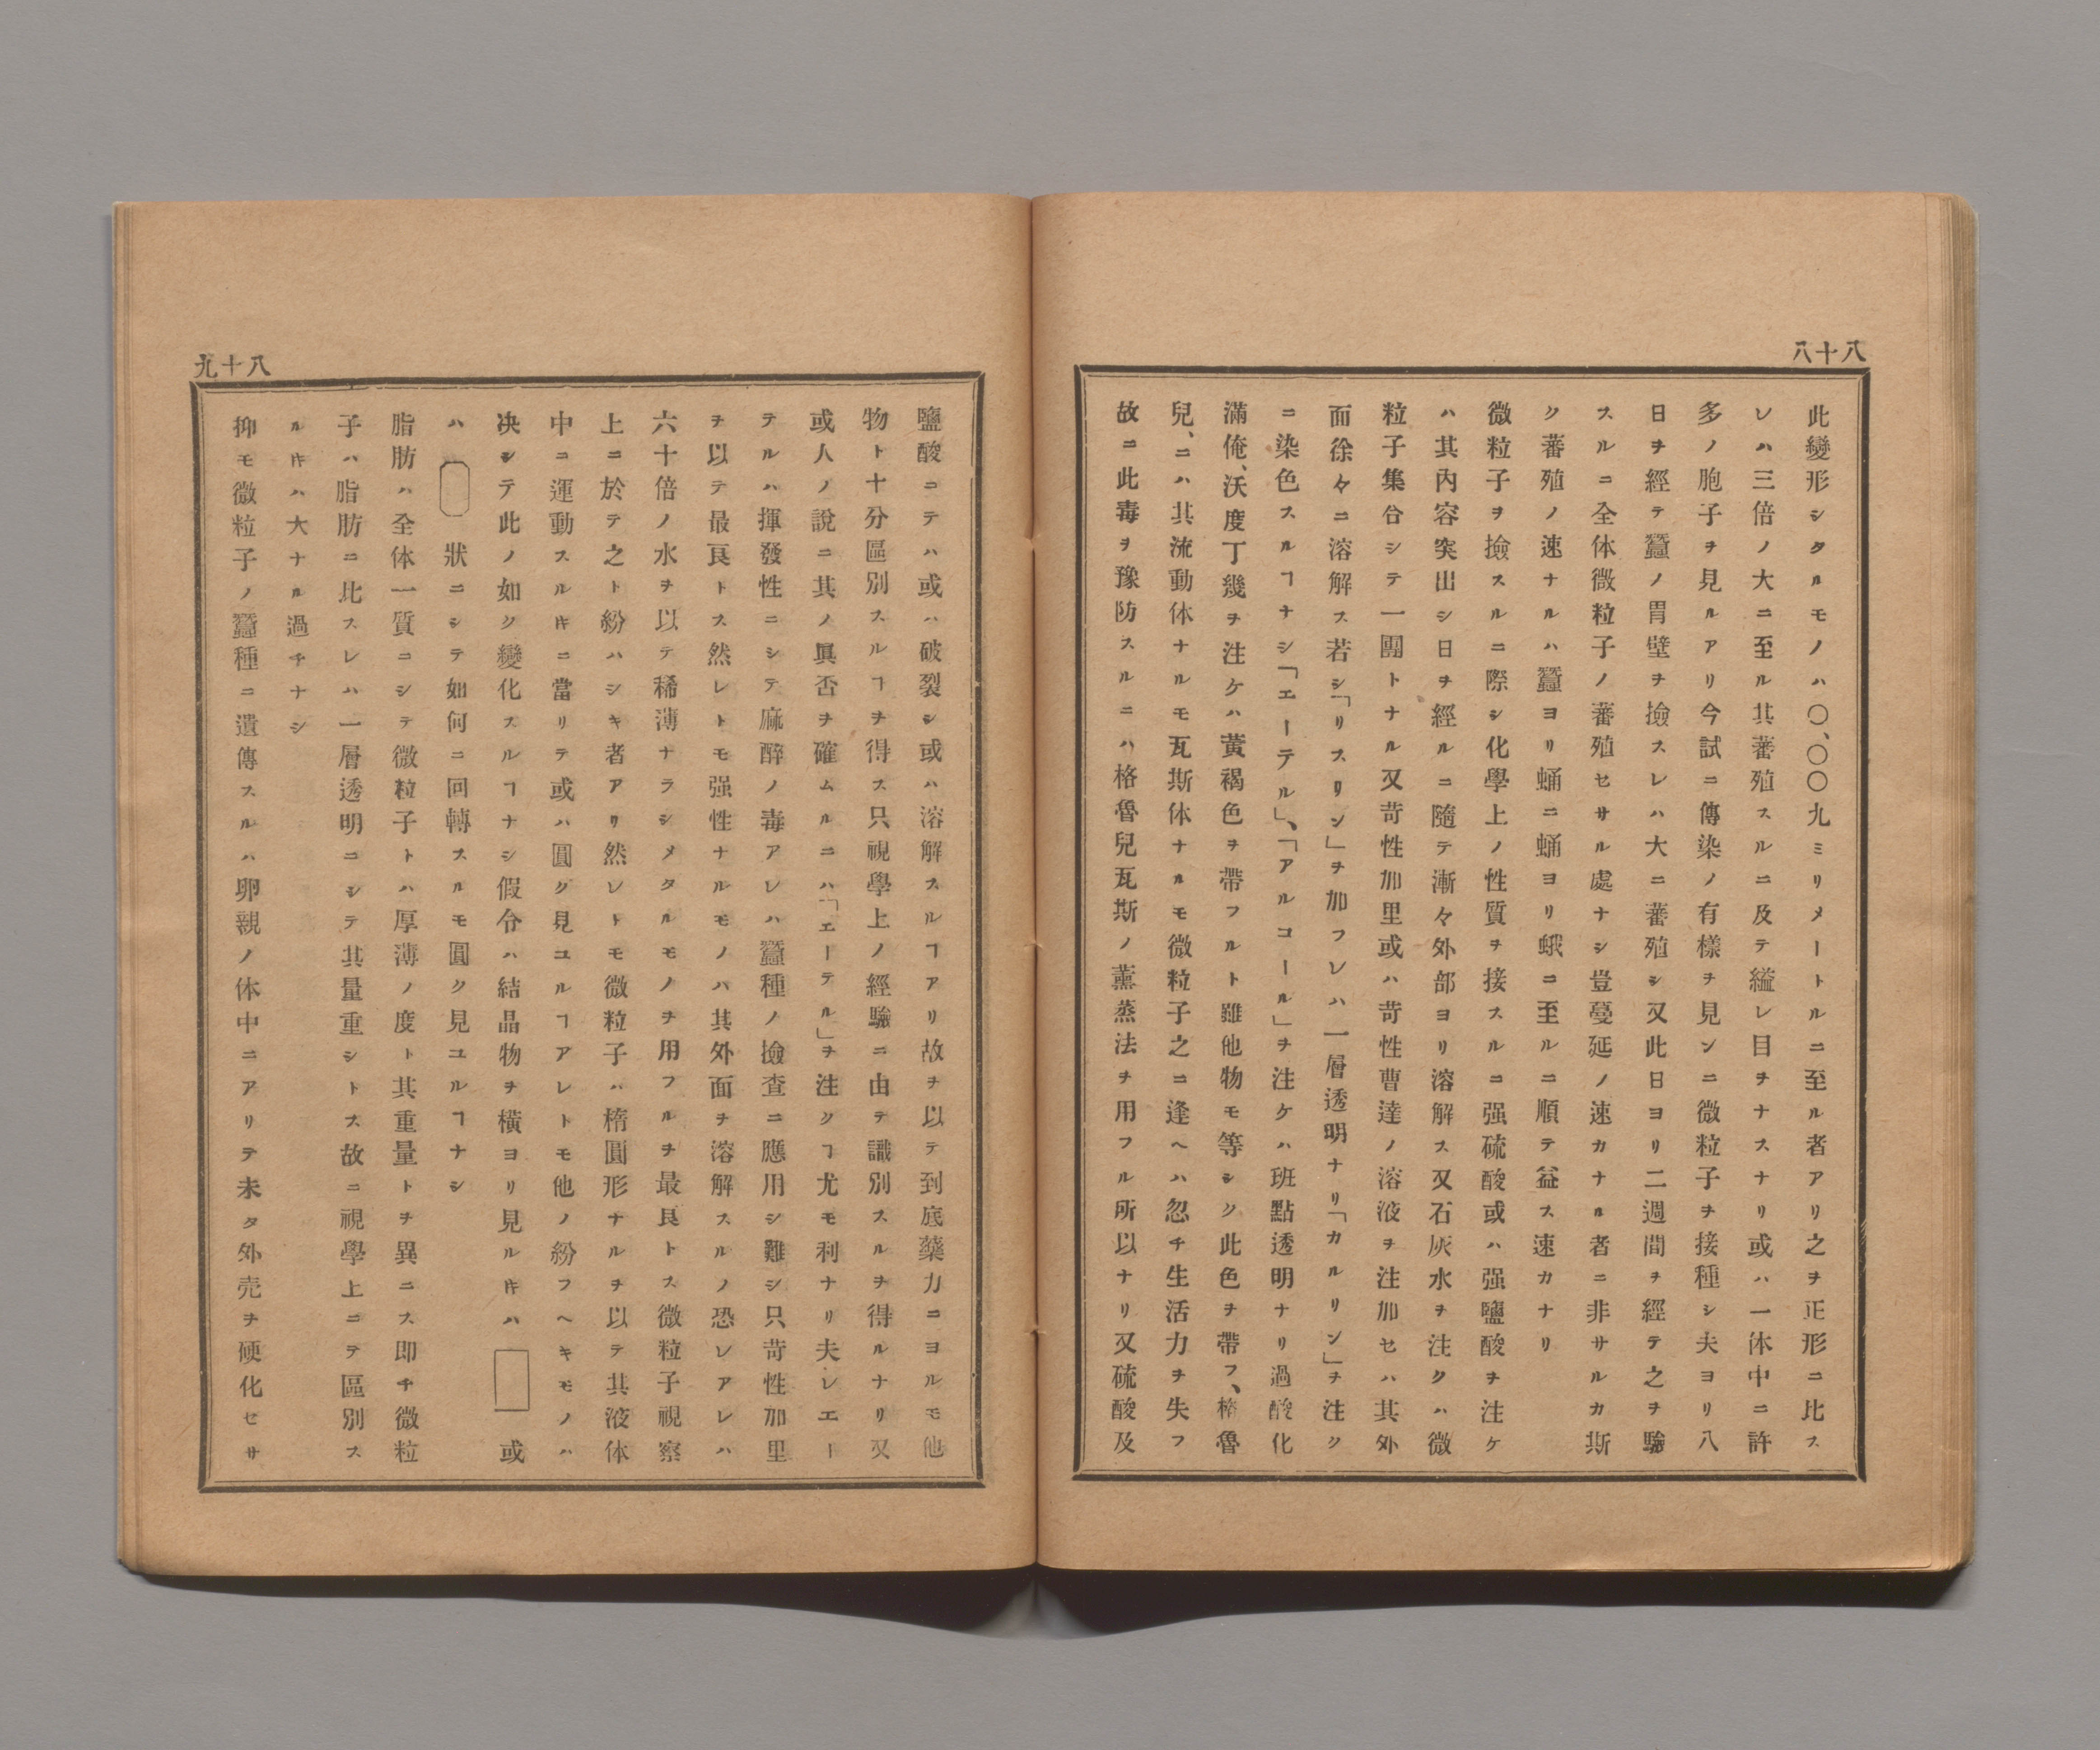 八十八
此變形シタルモノハ〇、〇〇九ミリメートルニ至ル者アリ之ヲ正形ニ比ス
レハ三倍ノ大ニ至ル其蕃殖スルニ及テ縊レ目ヲナスナリ或ハ一体中ニ許
多ノ胞子ヲ見ルアリ今試ニ傳染ノ有樣ヲ見ンニ微粒子ヲ接種シ夫ヨリ八
日ヲ經テ蠶ノ胃壁ヲ撿スレハ大ニ蕃殖シ又此日ヨリ二週間ヲ經テ之ヲ驗
スルニ全体微粒子ノ蕃殖セサル處ナシ豈蔓延ノ速カナル者ニ非サルカ斯
ク蕃殖ノ速ナルハ蠶ヨリ蛹ニ蛹ヨリ蛾ニ至ルニ順テ益ス速カナリ
微粒子ヲ撿スルニ際シ化學上ノ性質ヲ接スルニ强硫酸或ハ强鹽酸ヲ注ケ
ハ其內容突出シ日ヲ經ルニ隨テ漸々外部ヨリ溶解ス又石灰水ヲ注クハ微
粒子集合シテ一團トナル又苛性加里或ハ苛性曹達ノ溶液ヲ注加セハ其外
面徐々ニ溶解ス若シ「リスリン」ヲ加フレハ一層透明ナリ「カルリン」ヲ注ク
ニ染色スルヿナシ「エーテル」、「アルコール」ヲ注ケハ班點透明ナリ過酸化
滿俺、沃度丁幾ヲ注ケハ黃褐色ヲ帶フルト雖他物モ等シク此色ヲ帶フ、格魯
兒、ニハ其流動体ナルモ瓦斯体ナルモ微粒子之ニ逢ヘハ忽チ生活力ヲ失フ
故ニ此毒ヲ豫防スルニハ格魯兒瓦斯ノ薰蒸法ヲ用フル所以ナリ又硫酸及
八十九
鹽酸ニテハ或ハ破裂シ或ハ溶解スルヿアリ故ヲ以テ到底藥力ニヨルモ他
物ト十分區別スルヿヲ得ス只視學上ノ經驗ニ由テ識別スルヲ得ルナリ又
或人ノ說ニ其ノ眞否ヲ確ムルニハ「エーテル」ヲ注クヿ尤モ利ナリ夫レエー
テルハ揮發性ニシテ麻醉ノ毒アレハ蠶種ノ撿査ニ應用シ難シ只苛性加里
ヲ以テ最良トス然レトモ强性ナルモノハ其外面ヲ溶解スルノ恐レアレハ
六十倍ノ水ヲ以テ稀薄ナラシメタルモノヲ用フルヲ最良トス微粒子視察
上ニ於テ之ト紛ハシキ者アリ然レトモ微粒子ハ楕圓形ナルヲ以テ其液体
中ニ運動スルキニ當リテ或ハ圓ク見ユルヿアレトモ他ノ紛フヘキモノハ
决シテ此ノ如ク變化スルヿナシ假令ハ結晶物ヲ橫ヨリ見ルキハ 或
ハ 狀ニシテ如何ニ回轉スルモ圓ク見ユルヿナシ
脂肪ハ全体一質ニシテ微粒子トハ厚薄ノ度ト其重量トヲ異ニス即チ微粒
子ハ脂肪ニ比スレハ一層透明ニシテ其量重シトス故ニ視學上ニテ區別ス
ルキハ大ナル過チナシ
抑モ微粒子ノ蠶種ニ遺傳スルハ卵親ノ体中ニアリテ未タ外売ヲ硬化セサ